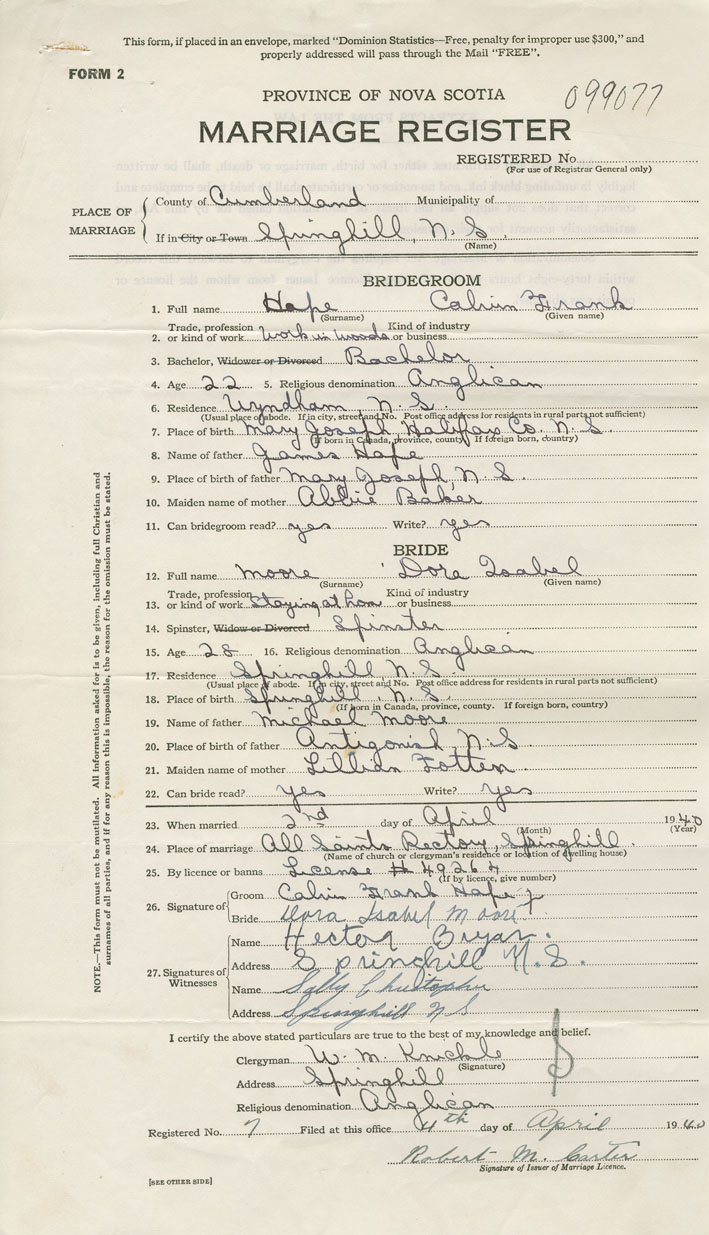 This form, if placed in an envelope, marked "Dominion Statistics—Free, penalty for improper use $300," and
properly addressed will pass through the Mail "FREE".
FORM 2
PROVINCE OF NOVA SCOTIA
099077
MARRIAGE REGISTER
REGISTERED No.
(For use of Registrar General only)
PLACE OF MARRIAGE
County of Cumberland Municipality of
If in City or Town Springhill, N.S.
(Name)
BRIDEGROOM
1. Full name Hape Calvin Frank
(Surname) (Given name)
Trade, profession Kind of industry
2. or kind of work Work in woods or business
3. Bachelor, Widower or Divorced Bachelor
4. Age 22 5. Religious denomination Anglican
6. Residence Wyndham N.S.
(Usual place of abode. If in city, street and No. Post office address for residents in rural parts not sufficient)
7. Place of birth Mary Joseph Halifax Co. N.S.
(If born in Canada, province, county. If foreign born, country)
8. Name of father James Hape
9. Place of birth of father Mary Joseph, N.S.
10. Maiden name of mother Abbie Baker
11. Can bridegroom read? yes Write? yes
BRIDE
12. Full name Moore Dora Isabel
(Surname) (Given name)
Trade, profession Kind of industry
13. or kind of work Staying at hom or business
14. Spinster, Widow or Divorced Spinster
15. Age 28 16. Religious denomination Anglican
17. Residence Springhill, N.S.
(Usual place of abode. If in city, street and No. Post office address for residents in rural parts not sufficient)
18. Place of birth Springhill, N.S.
(If born in Canada, province, county. If foreign born, country)
19. Name of father Michael Moore
20. Place of birth of father Antigonish N.S
21. Maiden name of mother Lillian Totten
22. Can bride read? yes Write? yes
23. When married 2nd day of April 1940
(Month) (Year)
24. Place of marriage All Saints Rectory, Springhill.
(Name of church or clergyman's residence or location of dwelling house)
25. By licence or banns License # 49264
(If by licence, give number)
26. Signature of
Groom Calvin Frank Hape
Bride Dora Isabel Moore
27. Signatures of Witnesses
Name Hector Bryan.
Address Springhill N.S.
Name Sally Christopher
Address Springhill N S
I certify the above stated particulars are true to the best of my knowledge and belief.
Clergyman W. M. Knickle
(Signature)
Address Springhill
Religious denomination Anglican
Registered No. 7 Filed at this office 4th day of April 1940
Robert M. Carter
Signature of Issuer of Marriage Licence.
[SEE OTHER SIDE]
NOTE.—This form must not be mutilated. All information asked for is to be given, including full Christian and
surnames of all parties, and if for any reason this is impossible, the reason for the omission must be stated.